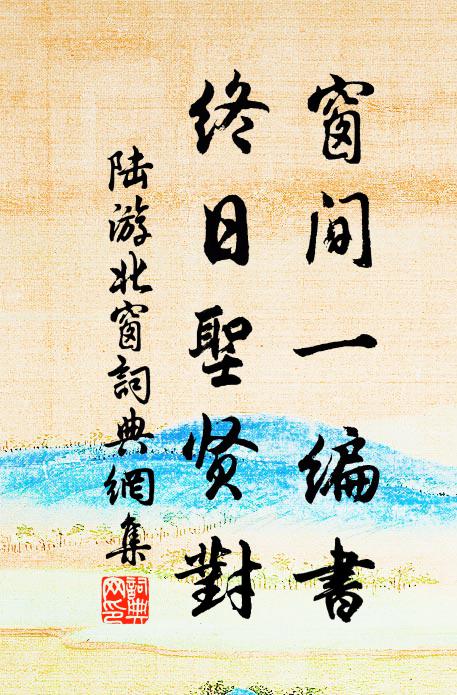 窗間一编書
终日聖贤對
陆游北窗詞典網集
詞典网印